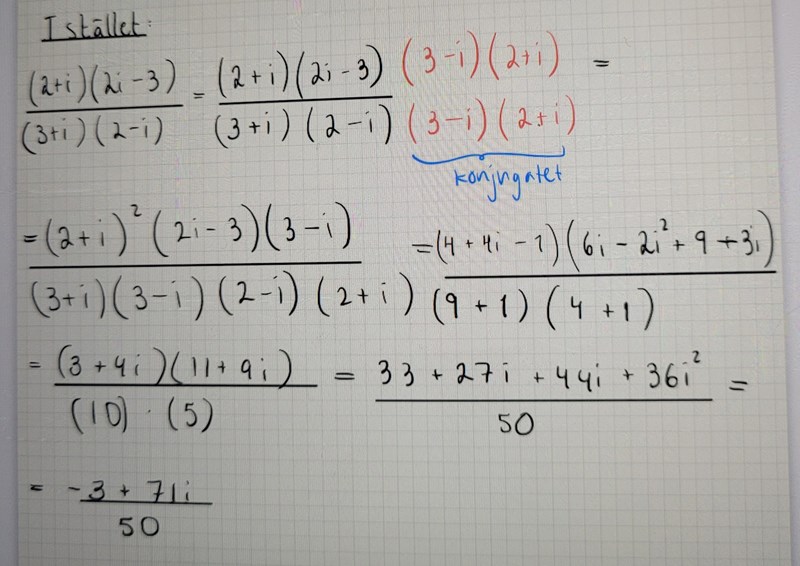 I stället:
(2+i)(2i-3)/(3+i)(2-i) = (2+i)(2i-3)/(3+i)(2-i) (3-i)(2+i)/(3-i)(2+i) =
konjugatet
= (2+i)²(2i-3)(3-i)/(3+i)(3-i)(2-i)(2+i) = (4+4i-1)(6i-2i²+9+3i)/(9+1)(4+1)
= (3+4i)(11+9i)/(10)·(5) = 33+27i+44i+36i²/50 =
= -3+71i/50